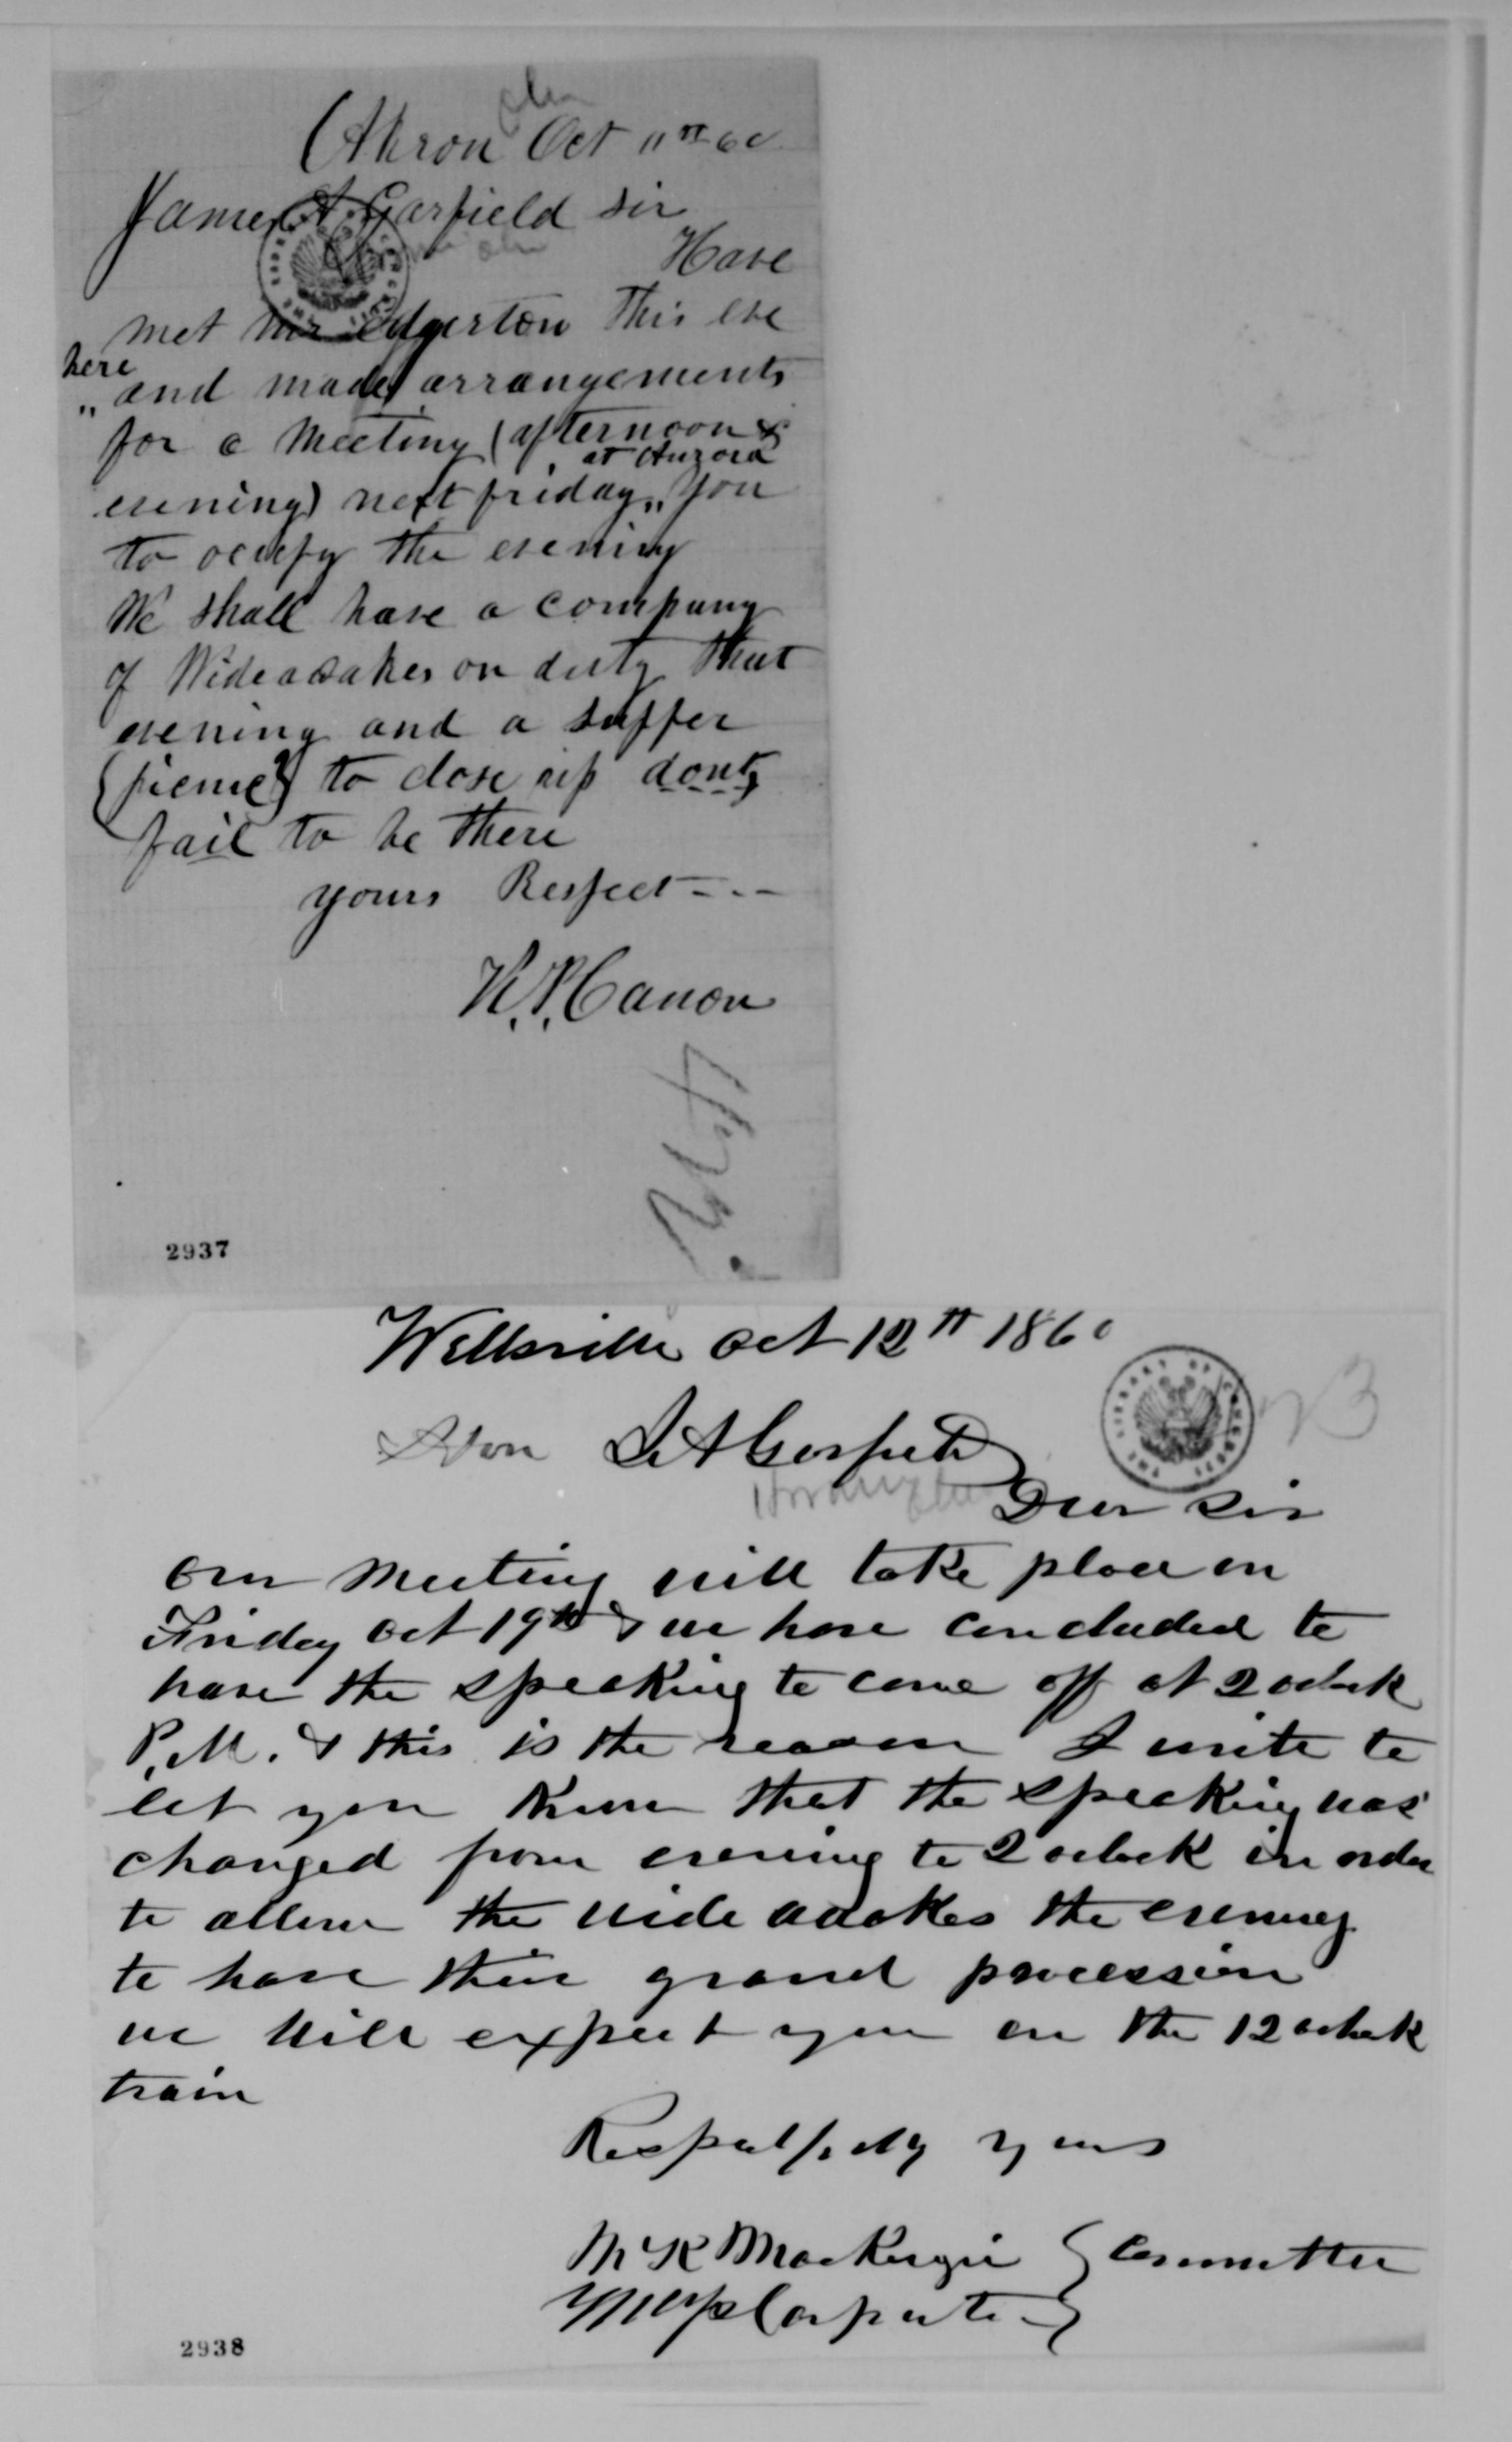 Ohio
Akron Oct 11th 60
James A. Garfield sir
Have
met Mr Edgerton This eve
here
" and made arrangements
for a Meeting (afternoon &
at Aurora
evening) next friday " You
to ocupy the evening
We shall have a company
of Wideawakes on duty that
evening and a supper
(picnic) to close up dont
fail to be there
yours Respect - - -
K. P. Canon
2937
Wellsville Oct 12th 1860
Hon J A Garfield
Dear Sir
Our Meeting will take place on
Friday Oct 19th & we have concluded to
have the speaking to come off at 2 oclock
P.M. & this is the reason I write to
let you know that the speaking was
changed from evening to 2 oclock in order
to allow the wide awakes the evening
to have their grand procession
we will expect you on the 12 oclock
train
Respectfully yours
M K MacKenzie } Committee
Carpenter }
2938
THE LIBRARY OF CONGRESS